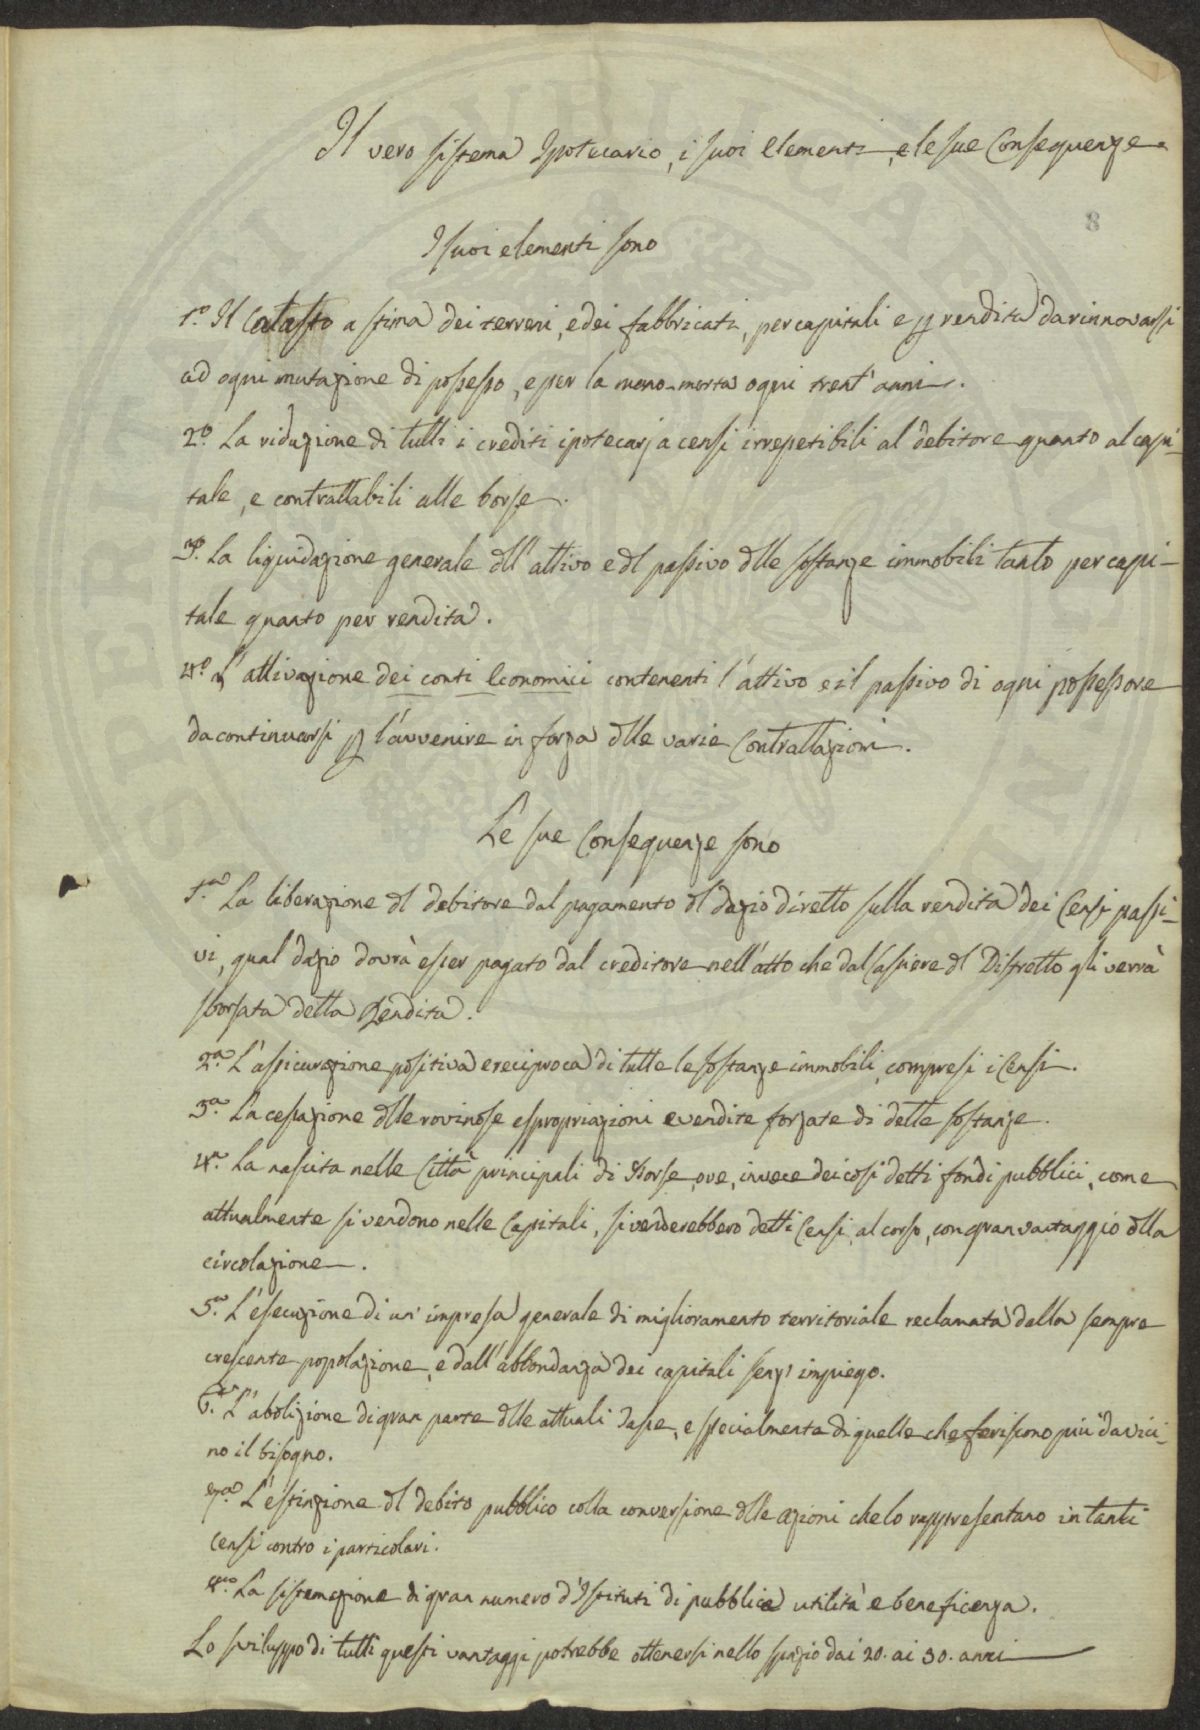 Il vero sistema Ipotecario, i suoi elementi, e le sue Conseguenze.
8
I suoi elementi sono
1.º Il Catasto a stima dei terreni, e dei fabbricati, per capitali e p rendita da rinnovarsi
ad ogni mutazione di possesso, e per la mano-morta ogni trent'anni.
2º La riduzione di tutti i crediti ipotecarj a censi irrepetibili al debitore quanto al capi-
tale, e contrattabili alle borse.
3º. La liquidazione generale dll'attivo e dl passivo dlle sostanze immobili tanto per capi-
tale quanto per rendita.
4.º L'attivazione dei conti Economici contenenti l'attivo e il passivo di ogni possessore
da continuarsi p l'avvenire in forza dlle varie Contrattazioni.
Le sue Conseguenze sono
1.ª La liberazione dl debitore dal pagamento dl dazio diretto sulla rendita dei Censi passi-
vi, qual dazio dovrà esser pagato dal creditore nell'atto che dal Cassiere dl Distretto gli verrà
sborsata della Rendita.
2.ª L'assicurazione positiva e reciproca di tutte le sostanze immobili, compresi i Censi.
3.ª La cessazione dlle rovinose espropriazioni e vendite forzate di dette sostanze.
4.ª La nascita nelle Città principali di Borse, ove, invece dei così detti fondi pubblici, come
attualmente si vendono nelle Capitali, si venderebbero detti Censi, al corso, con gran vantaggio dlla
circolazione.
5.ª L'esecuzione di un' impresa generale di miglioramento territoriale reclamata dalla sempre
crescente popolazione, e dall'abbondanza dei capitali senz' impiego.
6.ª L'abolizione di gran parte dlle attuali tasse, e specialmente di quelle che feriscono più da vici-
no il bisogno.
7.ª L'estinzione dl debito pubblico colla conversione dlle azioni che lo rappresentano in tanti
Censi contro i particolari.
8.ª La sistemazione di gran numero d'Istituti di pubblica utilità e beneficenza.
Lo sviluppo di tutti questi vantaggi potrebbe ottenersi nello spazio dai 20. ai 30. anni